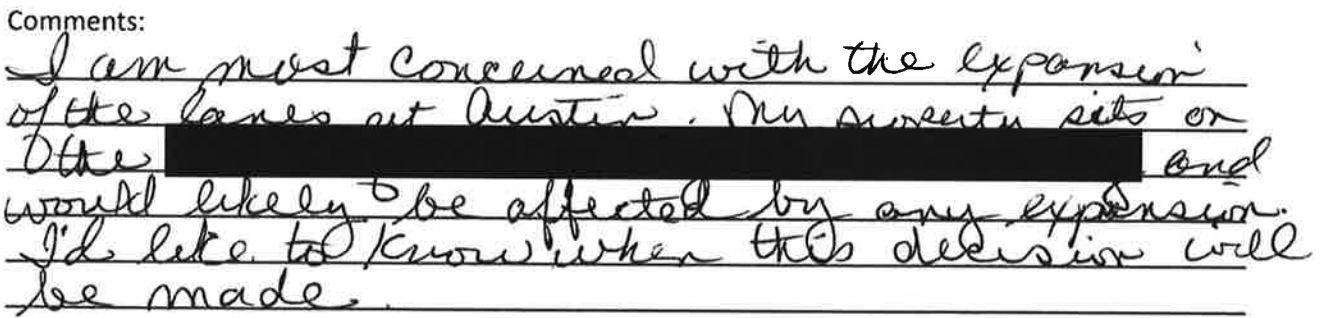 Comments:
I am most concerned with the expansion
of the lanes at Austin. My property sits on
the and
would likely be affected by any expansion.
I'd like to know when this decision will
be made.